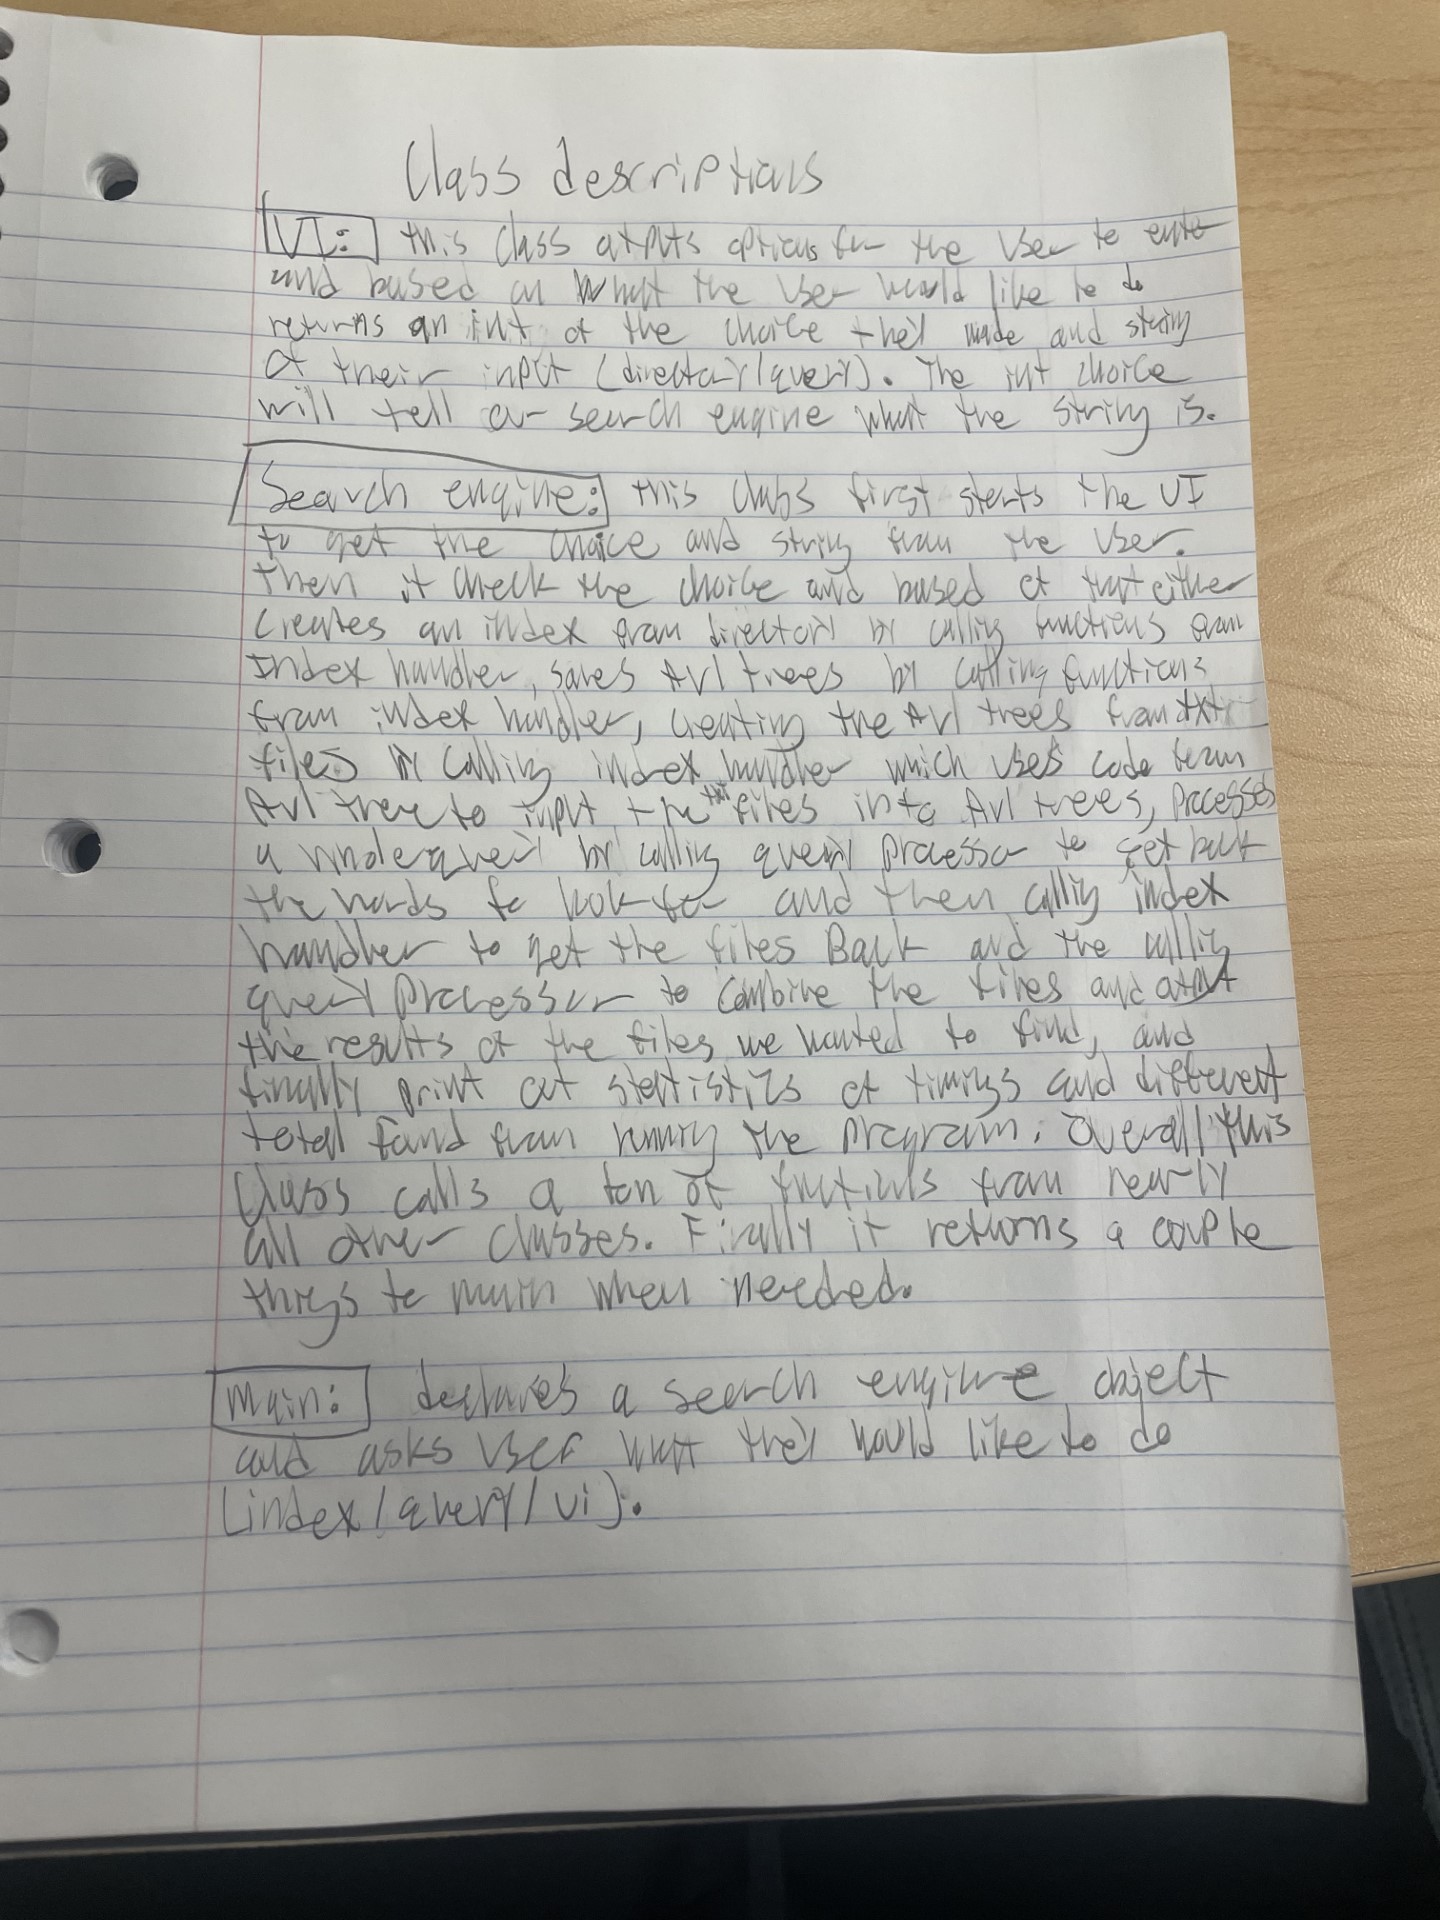 Class descriptions
UI: this class outputs options for the user to enter
and based on what the user would like to do
returns an int of the choice they made and string
of their input (directory/query). The int choice
will tell our search engine what the string is.
Search engine: this class first starts the UI
to get the choice and string from the user.
Then it check the choice and based of that either
creates an index from directory by calling functions from
Index handler, saves Avl trees by calling functions
from index handler, creating the Avl trees from txt
files by calling index handler which uses code from
Avl tree to input the txt files into Avl trees, processes
a query by calling query processor to get back
the words to look for and then calling index
handler to get the files Back and the calling
query processor to combine the files and output
the results of the files we wanted to find, and
finally print out statistics of timings and different
total found from running the program. Overall this
class calls a ton of functions from nearly
all other classes. Finally it returns a couple
things to main when needed.
Main: declares a search engine object
and asks user what they would like to do
(index/query/ui).